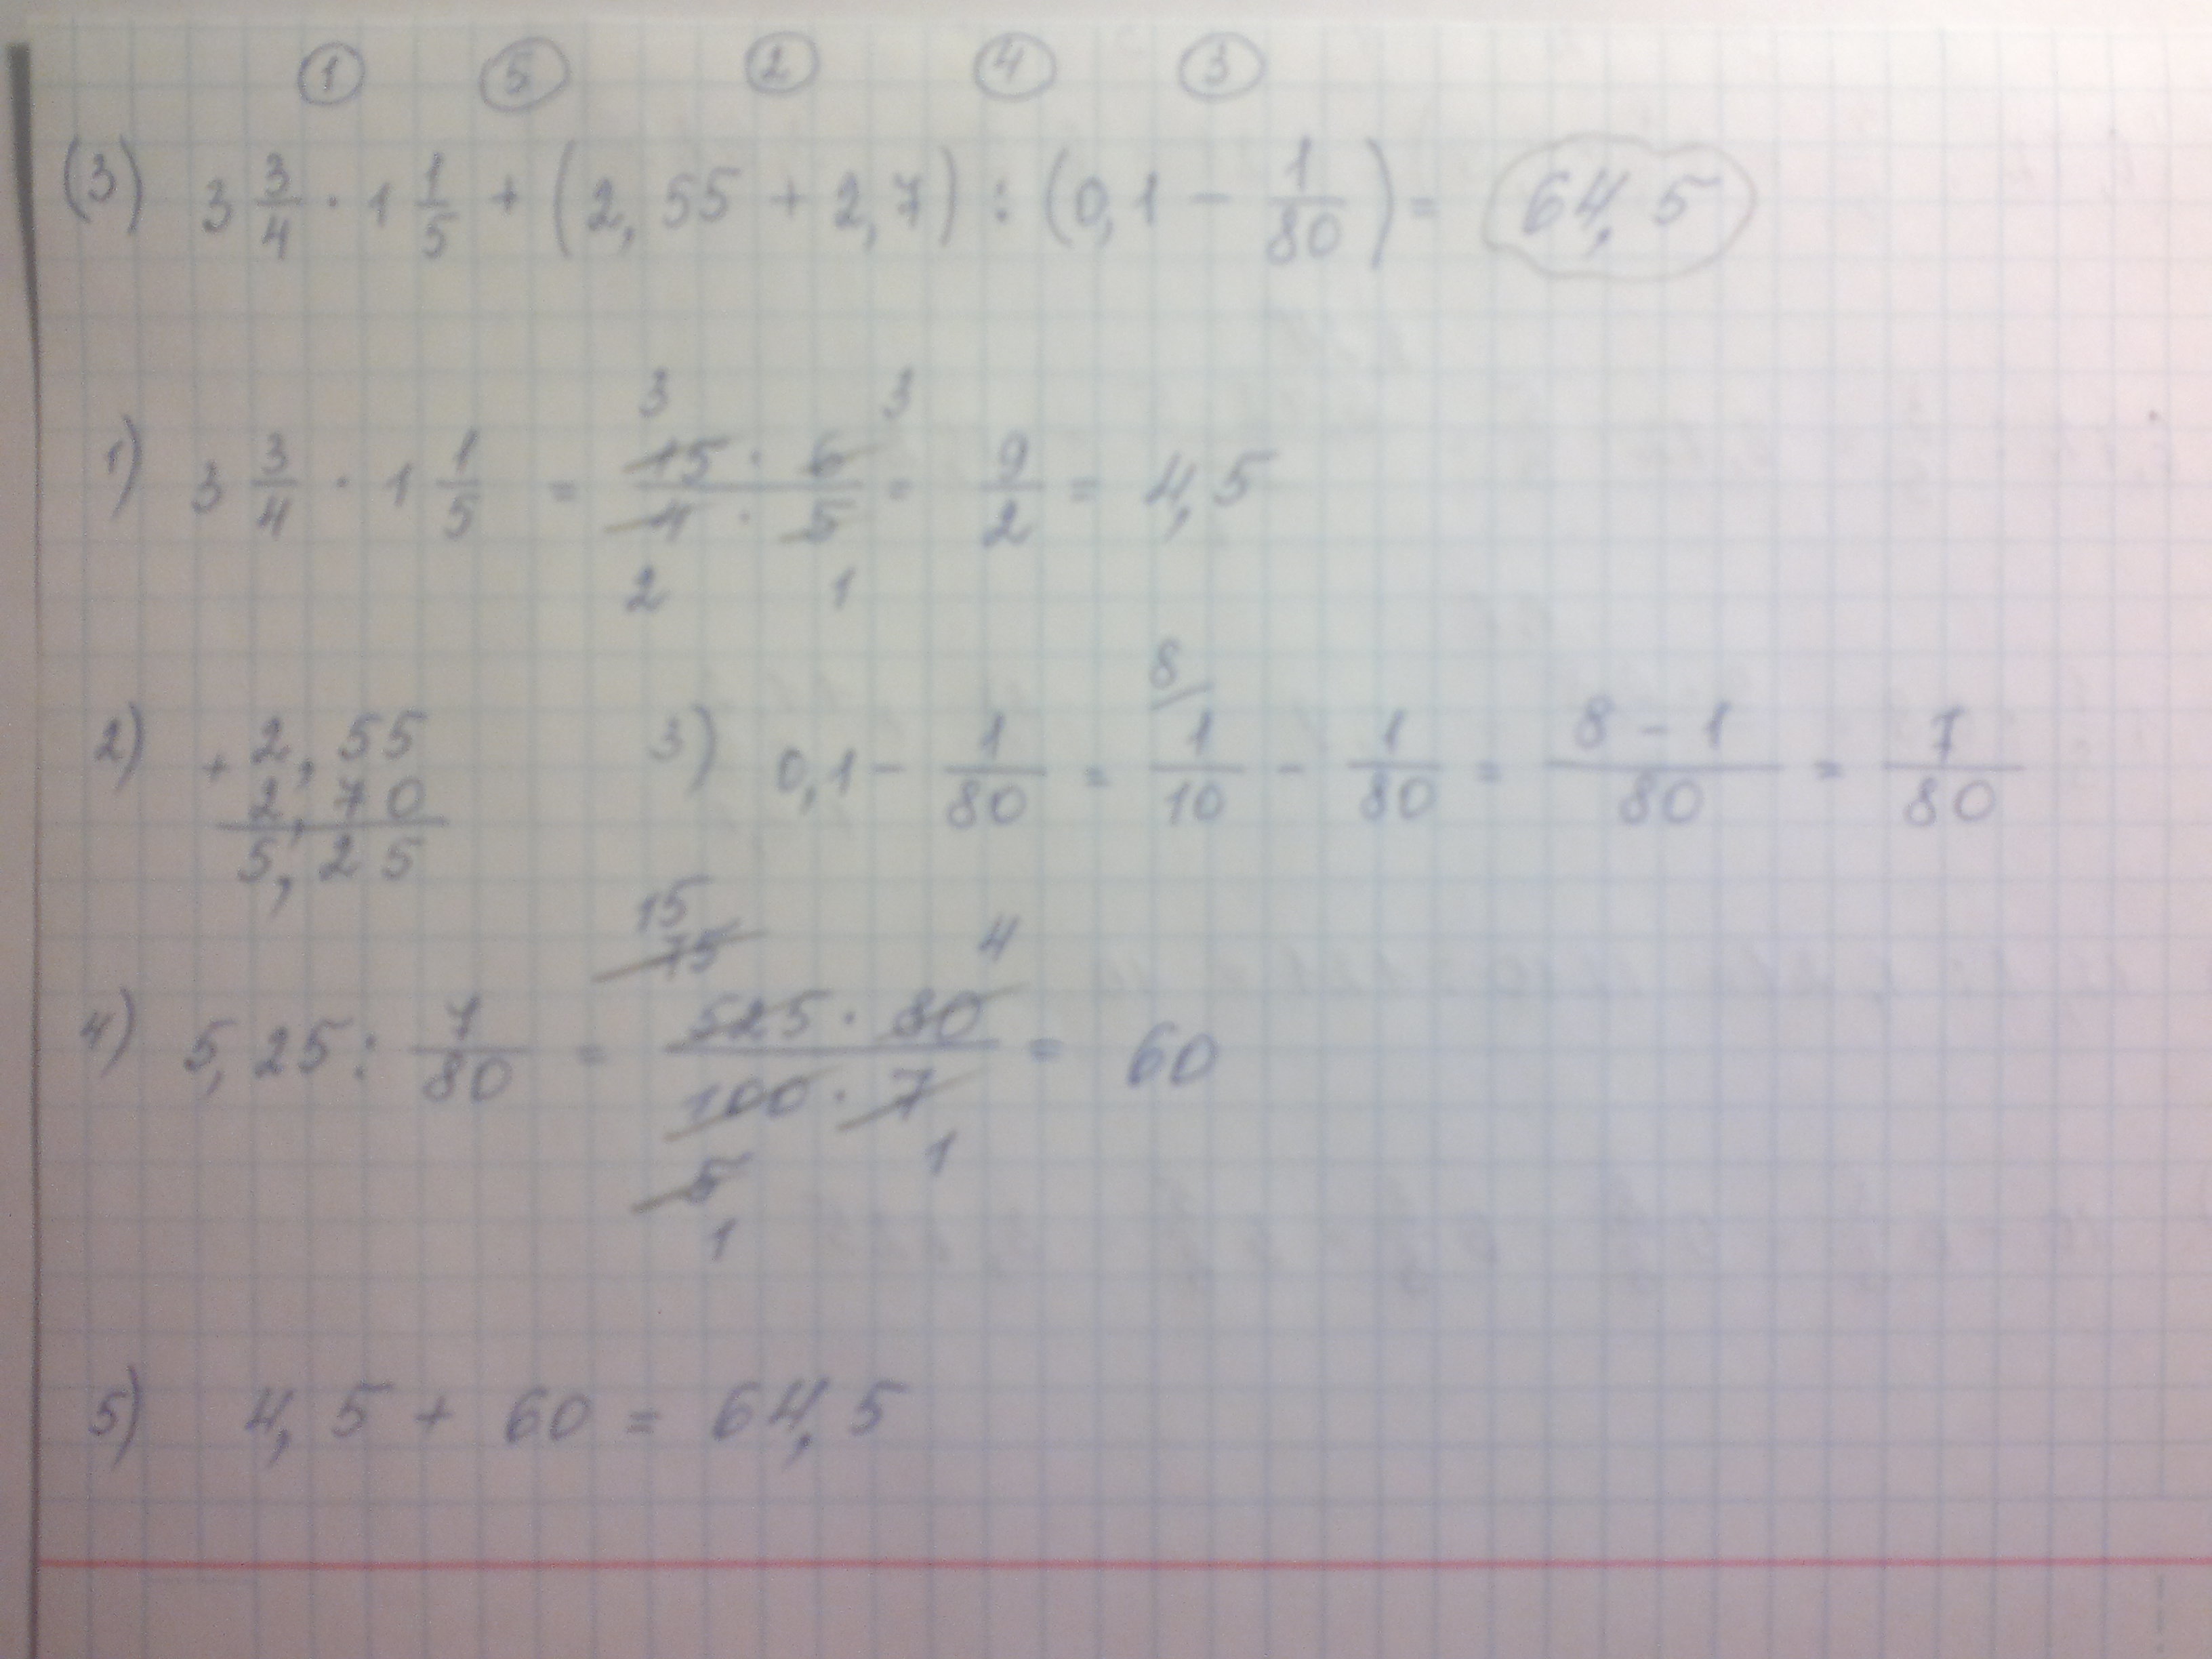 ① ⑤ ② ④ ③
(3) 3 3/4 · 1 1/5 + (2,55 + 2,7) : (0,1 - 1/80) = 64,5
3 3
1) 3 3/4 · 1 1/5 = 15 · 6 / 4 · 5 = 9/2 = 4,5
2 1
8/
2) + 2,55 3) 0,1 - 1/80 = 1/10 - 1/80 = 8 - 1 / 80 = 7/80
2,70
5,25
15
75 4
4) 5,25 : 7/80 = 525 · 80 / 100 · 7 = 60
5 1
1
5) 4,5 + 60 = 64,5